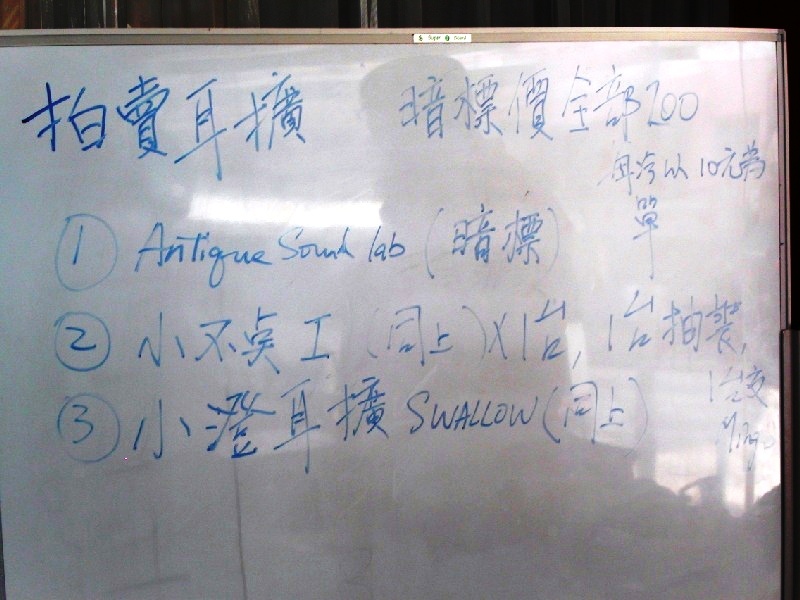 拍賣耳擴 暗標價全部200
每次以10元為
單
① Antique Sound lab (暗標)
② 小不点 I (同上)X1台, 1台拍裝,
1台交
③ 小澄耳擴 SWALLOW (同上)